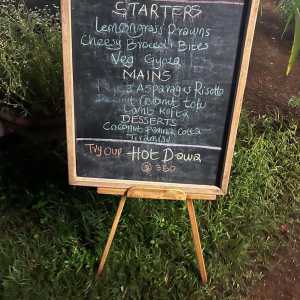 STARTERS
Lemongrass Prawns
Cheesy Broccoli Bites
Veg Gyoza
MAINS
Asparagus Risotto
Coconut Tofu
Lamb Kofta
DESSERTS
Coconut Panna Cotta
Tiramisu
Try Our Hot Dawa
@ 350